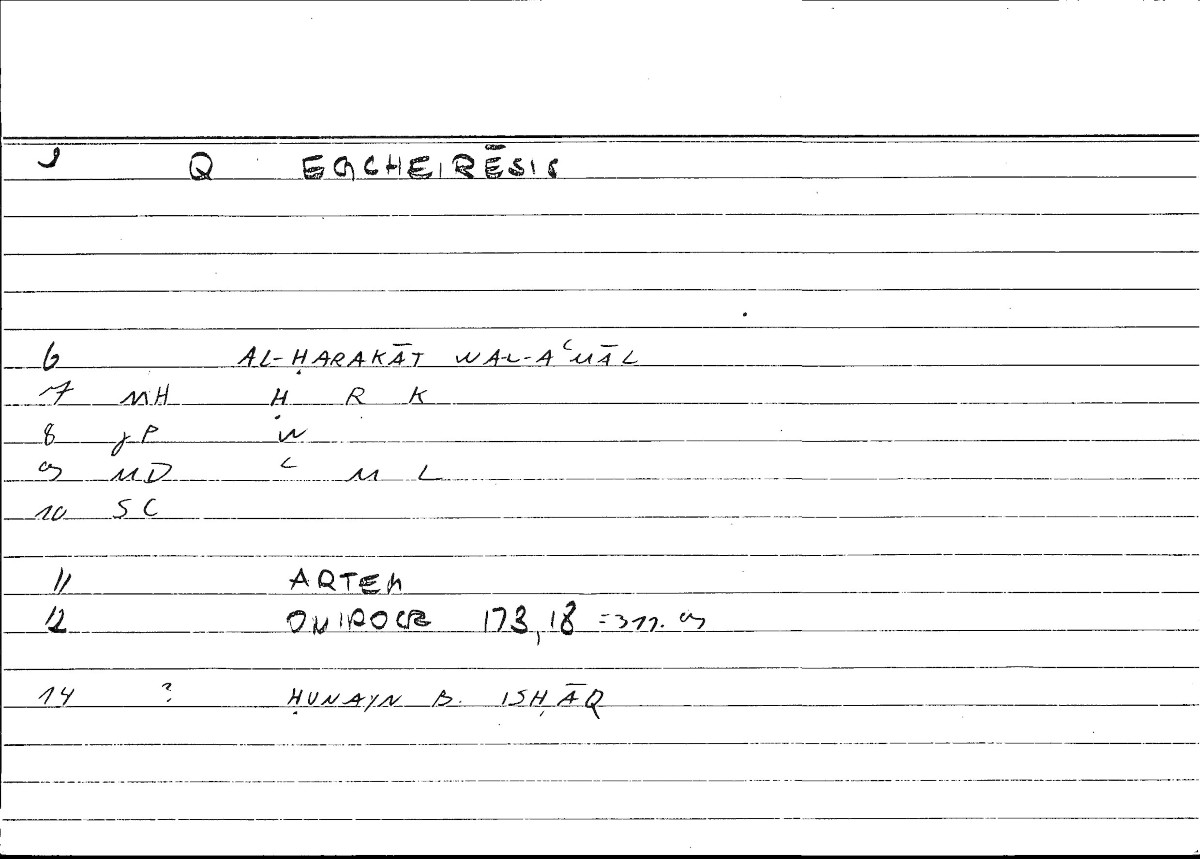 Q EGCHEIRĒSIS
6 AL-ḤARAKĀT WAL-AʿMĀL
7 MH Ḥ R K
8 JP W
9 MD ʿ M L
10 SC
11 ARTEM
12 ONIROCR 173,18 = 311. 9
14 ? ḤUNAYN B. ISḤĀQ